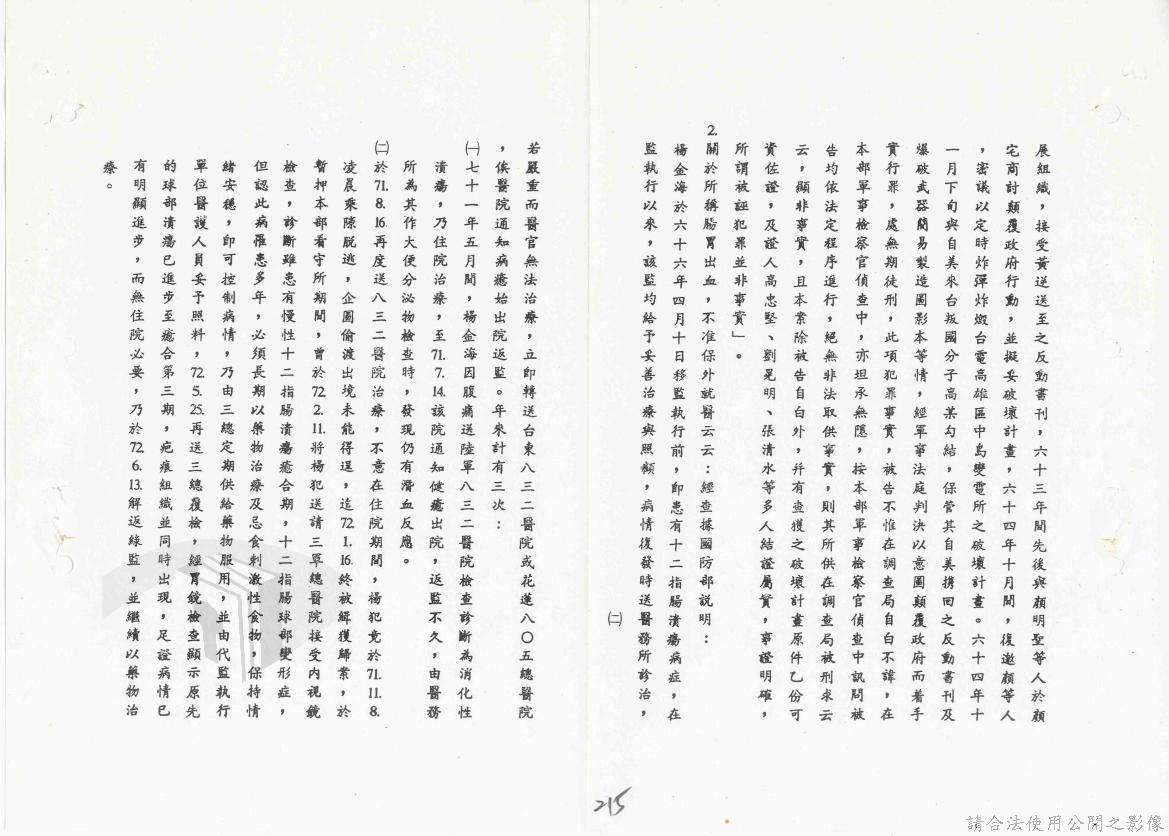 展組織，接受黃逆送至之反動書刊，六十三年間先後與顏明聖等人於顏
宅商討顛覆政府行動，並擬妥破壞計畫，六十四年十月間，復邀顏等人
，密議以定時炸彈炸燬台電高雄區中島變電所之破壞計畫。六十四年十
一月下旬與自美來台叛國分子高某勾結，保管其自美携回之反動書刊及
爆破武器簡易製造圖影本等情，經軍事法庭判決以意圖顛覆政府而着手
實行罪，處無期徒刑，此項犯罪事實，被告不惟在調查局自白不諱，在
本部軍事檢察官偵查中，亦坦承無隱，按本部軍事檢察官偵查中訊問被
告均依法定程序進行，絕無非法取供事實，則其所供在調查局被刑求云
云，顯非事實，且本案除被告自白外，幷有查獲之破壞計畫原件乙份可
資佐證，及證人高忠堅、劉晃明、張清水等多人結證屬實，事證明確，
所謂被誣犯罪並非事實」。
2.關於所稱腸胃出血，不准保外就醫云云：經查據國防部説明：
楊金海於六十六年四月十日移監執行前，即患有十二指腸潰瘍病症，在
監執行以來，該監均給予妥善治療與照顧，病情復發時送醫務所診治，
㈡
若嚴重而醫官無法治療，立即轉送台東八三二醫院或花蓮八〇五總醫院
，俟醫院通知病癒始出院返監。年來計有三次：
㈠七十一年五月間，楊金海因腹痛送陸軍八三二醫院檢查診斷為消化性
潰瘍，乃住院治療，至71.7.14.該院通知健癒出院，返監不久，由醫務
所為其作大便分泌物檢查時，發現仍有潛血反應。
㈡於71.8.16.再度送八三二醫院治療，不意在住院期間，楊犯竟於71.11.8.
凌晨乘隙脱逃，企圖偷渡出境未能得逞，迄72.1.16.終被緝獲歸案，於
暫押本部看守所期間，曾於72.2.11.將楊犯送請三軍總醫院接受内視鏡
檢查，診斷雖患有慢性十二指腸潰瘍癒合期，十二指腸球部變形症，
但認此病罹患多年，必須長期以藥物治療及忌食刺激性食物，保持情
緒安穩，即可控制病情，乃由三總定期供給藥物服用，並由代監執行
單位醫護人員妥予照料，72.5.25.再送三總覆檢，經胃鏡檢查顯示原先
的球部潰瘍已進步至癒合第三期，疤痕組織並同時出現，足證病情已
有明顯進步，而無住院必要，乃於72.6.13.解返綠監，並繼續以藥物治
療。
215
請合法使用公開之影像